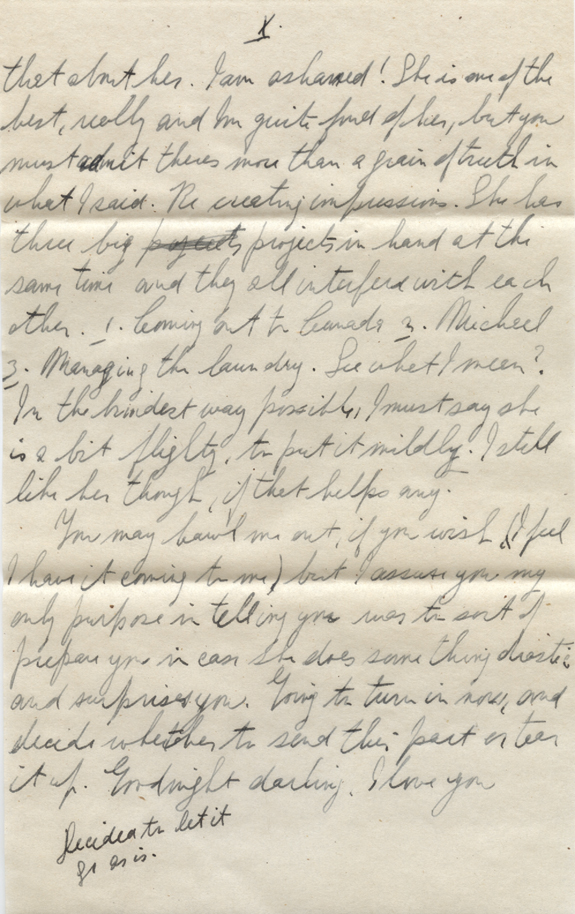 X.
that about her. I am ashamed! She is one of the
best, really and Im quite fond of her, but you
must admit theres more than a grain of truth in
what I said. Re creating impressions. She has
three big projects projects in hand at the
same time and they all interfere with each
other. 1. Coming out to Canada 2. Micheal
3. Managing the laundry. See what I mean?
In the kindest way possible, I must say she
is a bit flighty, to put it mildly. I still
like her though, if that helps any.
You may bawl me out, if you wish, (I feel
I have it coming to me) but I assure you my
only purpose in telling you was to sort of
prepare you in case she does some thing drastic
and surprises you. Going to turn in now, and
decide whether to send this part or tear
it up. Goodnight darling. I love you
Decided to let it
go as is.